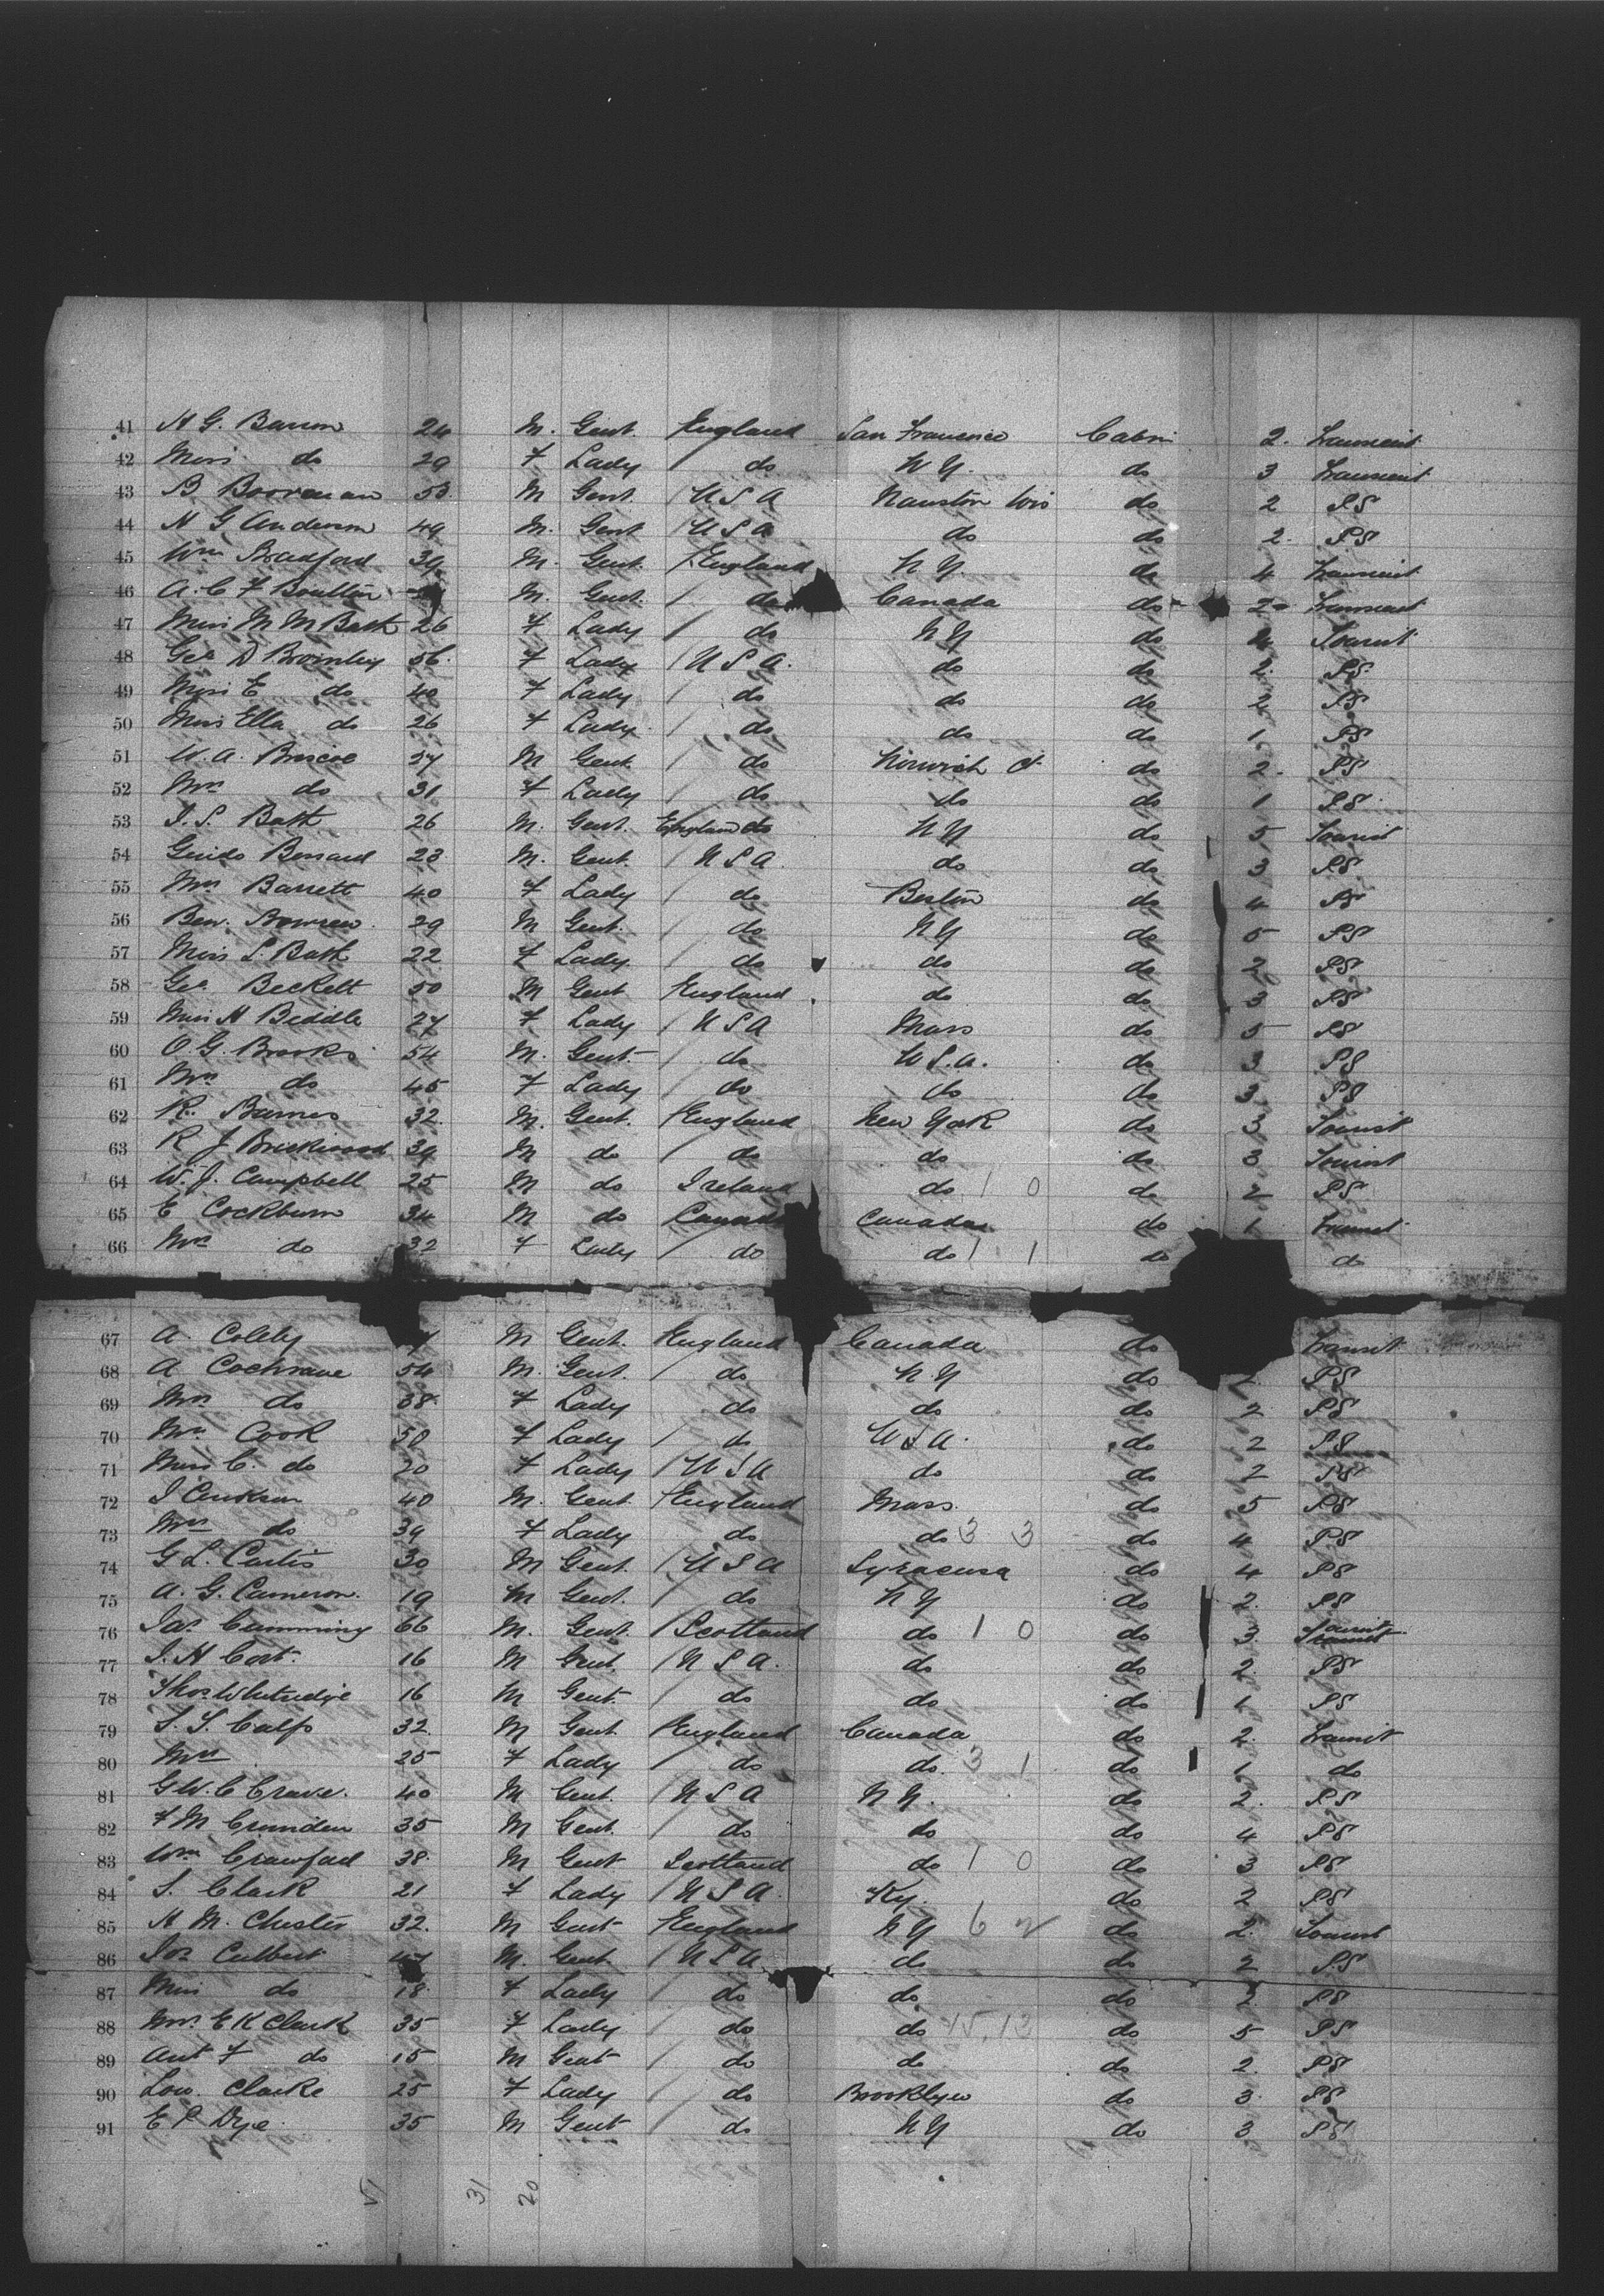 41 H G. Barron 24 M. Gent. England San Francisco Cabin 2. Transient
42 Miss do 29 F Lady / do N Y. do 3 Transient
43 B Boorman 53 M Gent. / U S A Mauston Wis do 2 PS
44 H G Anderson 49 M. Gent / U S A do do 2. PS
45 Wm Bradford 39 M. Gent. / England N Y. do 4 Transient
46 A. C F Boulton M. Gent. / do Canada do 2 Transient
47 Miss M M Bath 26 F Lady / do N Y do Tourist
48 Geo D Bromley 56. F Lady / U S A. do do 2. PS
49 Miss E do 40 F Lady / do do do 2 PS
50 Miss Ella do 26 F Lady / do do do 1 PS
51 W. A. Briscoe 37 M Gent. / do Norwich Ct do 2. PS
52 Mrs do 31 F Lady / do do do 1 PS
53 I. S. Bath 26 M. Gent. England N Y do 5 Tourist
54 Guido Bernard 23 M. Gent. / U S A do do 3 PS
55 Mrs Barrett 40 F Lady / do Boston do 4 PS
56 Ben. 29 M Gent. / do N Y do 5 PS
57 Miss S. Bath 22 F Lady / do do do 2 PS
58 Geo. Beckett 50 M Gent England do do 3 PS
59 Miss H Beddle 27 F Lady / U S A Mass do 5 PS
60 O. G. Brooks 54 M. Gent. / do U S. A. do 3 PS
61 Mrs do 45 F Lady / do do do 3 PS
62 R. Barnes 32. M. Gent. England New York do 3 Tourist
63 R J Brickwood 39 M do / do do do 3 Tourist
64 W. J. Campbell 25 M do Ireland do 1 0 do 2 PS
65 E Cockburn 34 M do Canada Canada do 1 Transit
66 Mrs do 32 F Lady / do do 1 1 do do
67 A. Coleby M Gent. England Canada do Transit
68 A Cochrane 54 M. Gent. / do N Y do 2 PS
69 Mrs do 38 F Lady do do do 2 PS
70 Mrs Cook 50 F Lady / do U S A. do 2 PS
71 Miss C. do 20 F Lady / U S A do do 2 PS
72 I 40 M. Gent. England Mass. do 5 PS
73 Mrs do 39 F Lady / do do 3 3 do 4 PS
74 G L. Curtis 30 M Gent / U S A Syracusa do 4 PS
75 A. G. Cameron. 19 M Gent. / do N Y do 2. PS
76 Jas. Cumming 66 M. Gent. / Scotland do 1 0 do 3. Tourist
77 J. H Cort. 16 M Gent. / U S A. do do 2. PS
78 Thos Whitridge 16 M Gent. / do do do 1 PS
79 S. S. Calfs 32. M Gent England Canada do 2. Transit
80 Mrs 25 F Lady / do do. 3 1 do 1 do
81 G W. C Crane. 40 M Gent. / U S A N Y. do 2. PS
82 F M Crunden 35 M Gent. / do do do 4 PS
83 Wm Crawford 38 M Gent Scotland do 1 0 do 3 PS
84 S. Clark 21 F Lady / U S A. Ky. do 2 PS
85 H M. Chester 32. M Gent England N Y 6 do 2. Tourist
86 Jos Culbert M. Gent. / U S A do do 2 PS
87 Miss do 18 F Lady / do do do 2 PS
88 Mrs. E K Clark 35 F Lady / do do 15. 13 do 5 PS
89 F do 15 M Gent / do do do 2. PS
90 Lou. Clarke 25 F Lady / do Brooklyn do 3. PS
91 E P Dye 35 M Gent / do N Y do 3 PS
31 20